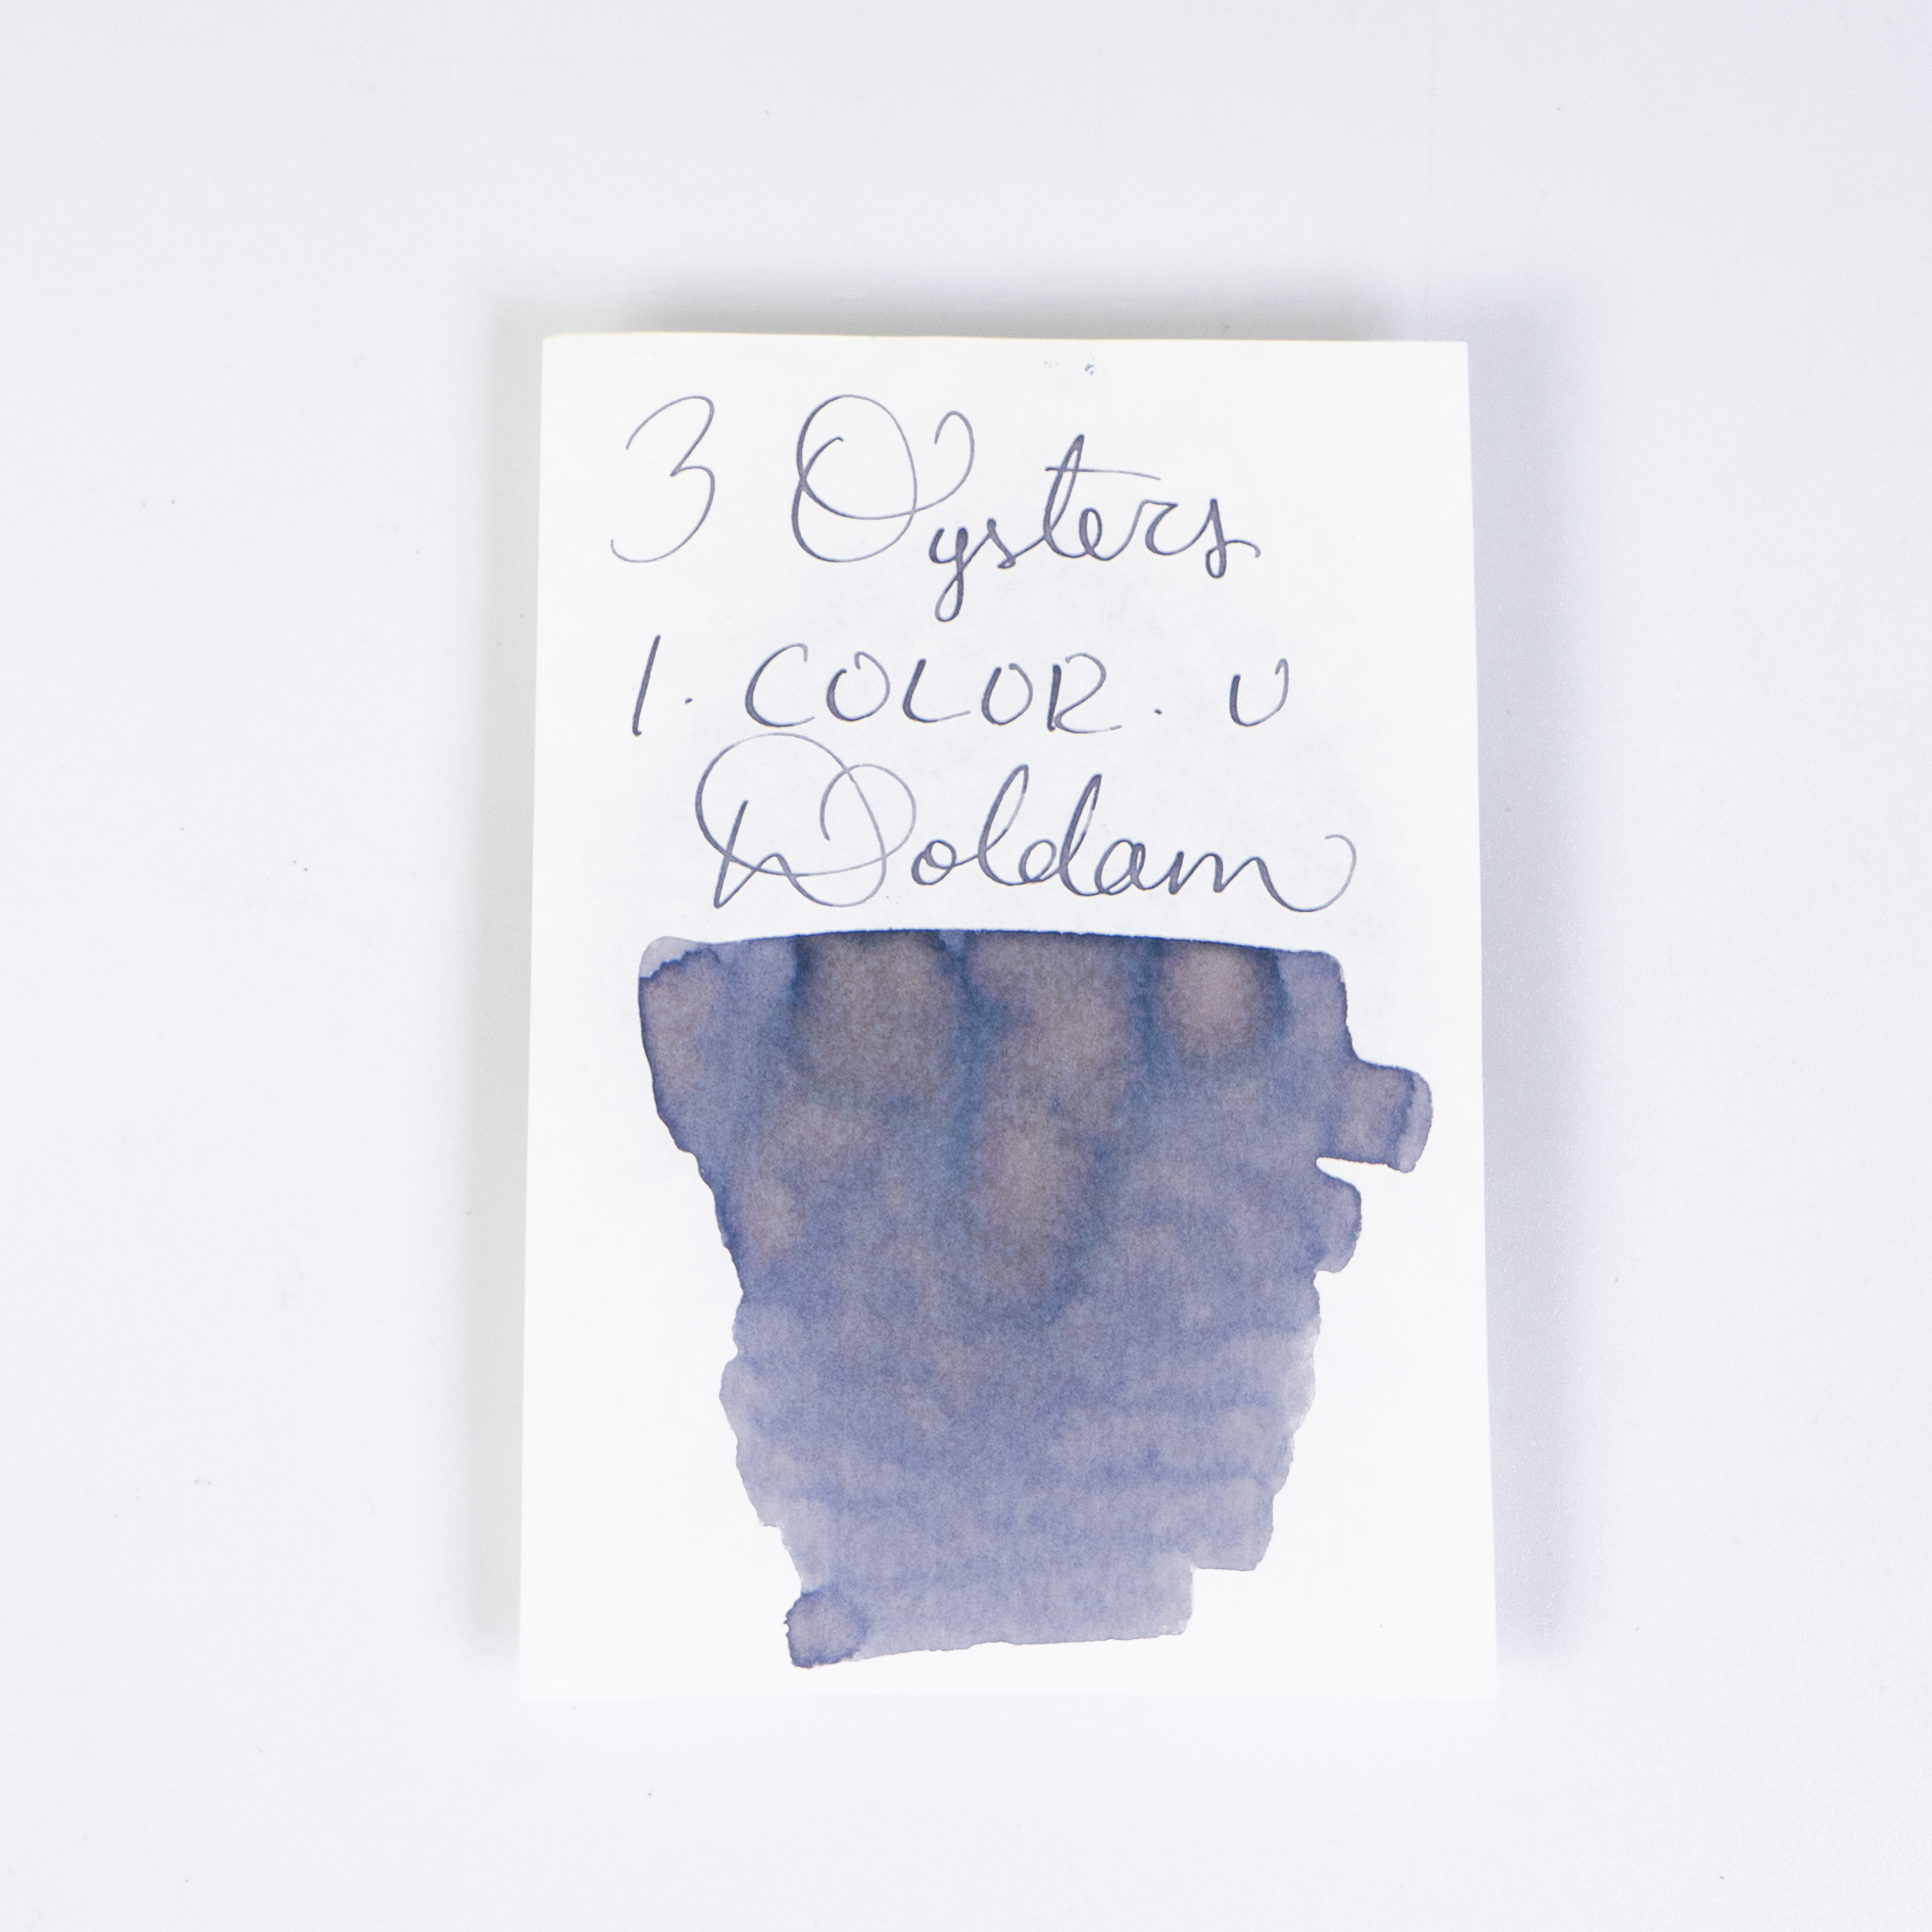 3 Oysters
1. COLOR. U
Doldam